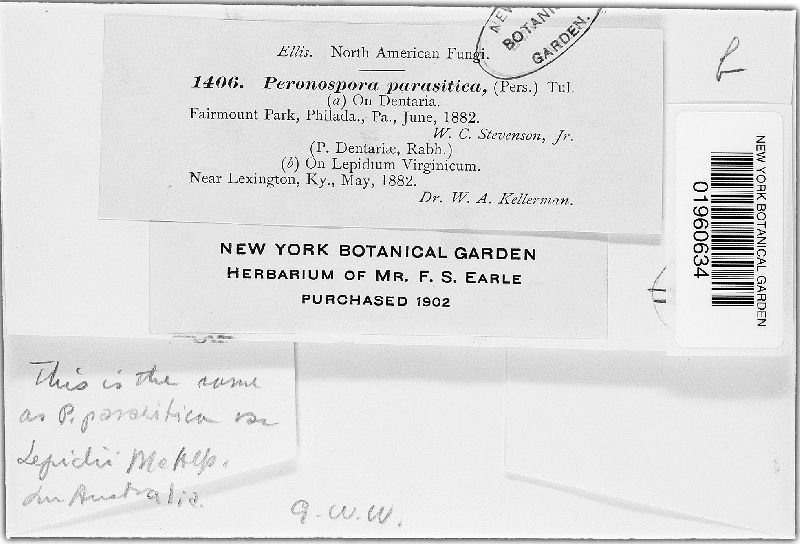 NEW
BOTANI
GARDEN.
Ellis. North American Fungi.
1406. Peronospora parasitica, (Pers.) Tul.
(a) On Dentaria.
Fairmount Park, Philada., Pa., June, 1882.
W. C. Stevenson, Jr.
(P. Dentariæ, Rabh.)
(b) On Lepidium Virginicum.
Near Lexington, Ky., May, 1882.
Dr. W. A. Kellerman.
NEW YORK BOTANICAL GARDEN
HERBARIUM OF MR. F. S. EARLE
PURCHASED 1902
NEW YORK BOTANICAL GARDEN
01960634
This is the same
as P. parasitica var
Lepidii McAlp.
in Australia.
G. W. W.